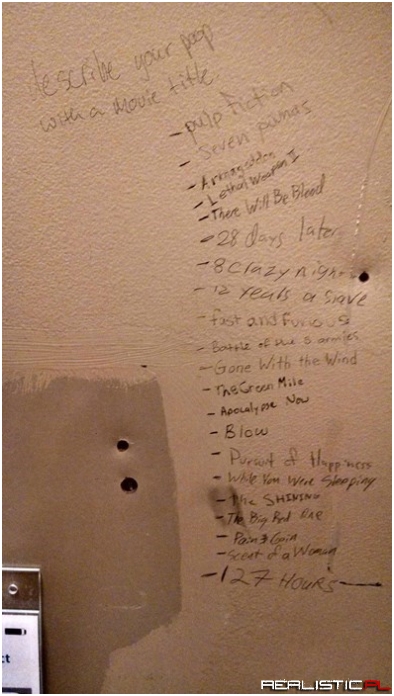 describe your poop
with a movie title
- pulp fiction
- Seven pounds
- Armnageddon
- Lethal Weapon I
- There Will Be Blood
- 28 days later
- 8 Crazy nights
- 12 years a slave
- fast and furious
- Battle of the 5 armies
- Gone With the Wind
- The Green Mile
- Apocalypse Now
- Blow
- Pursuit of Happiness
- While You Were Sleeping
- The SHINING
- The Big Red One
- Pain & Gain
- Scent of a Woman
- 127 HOURS
ct
REALISTICPL